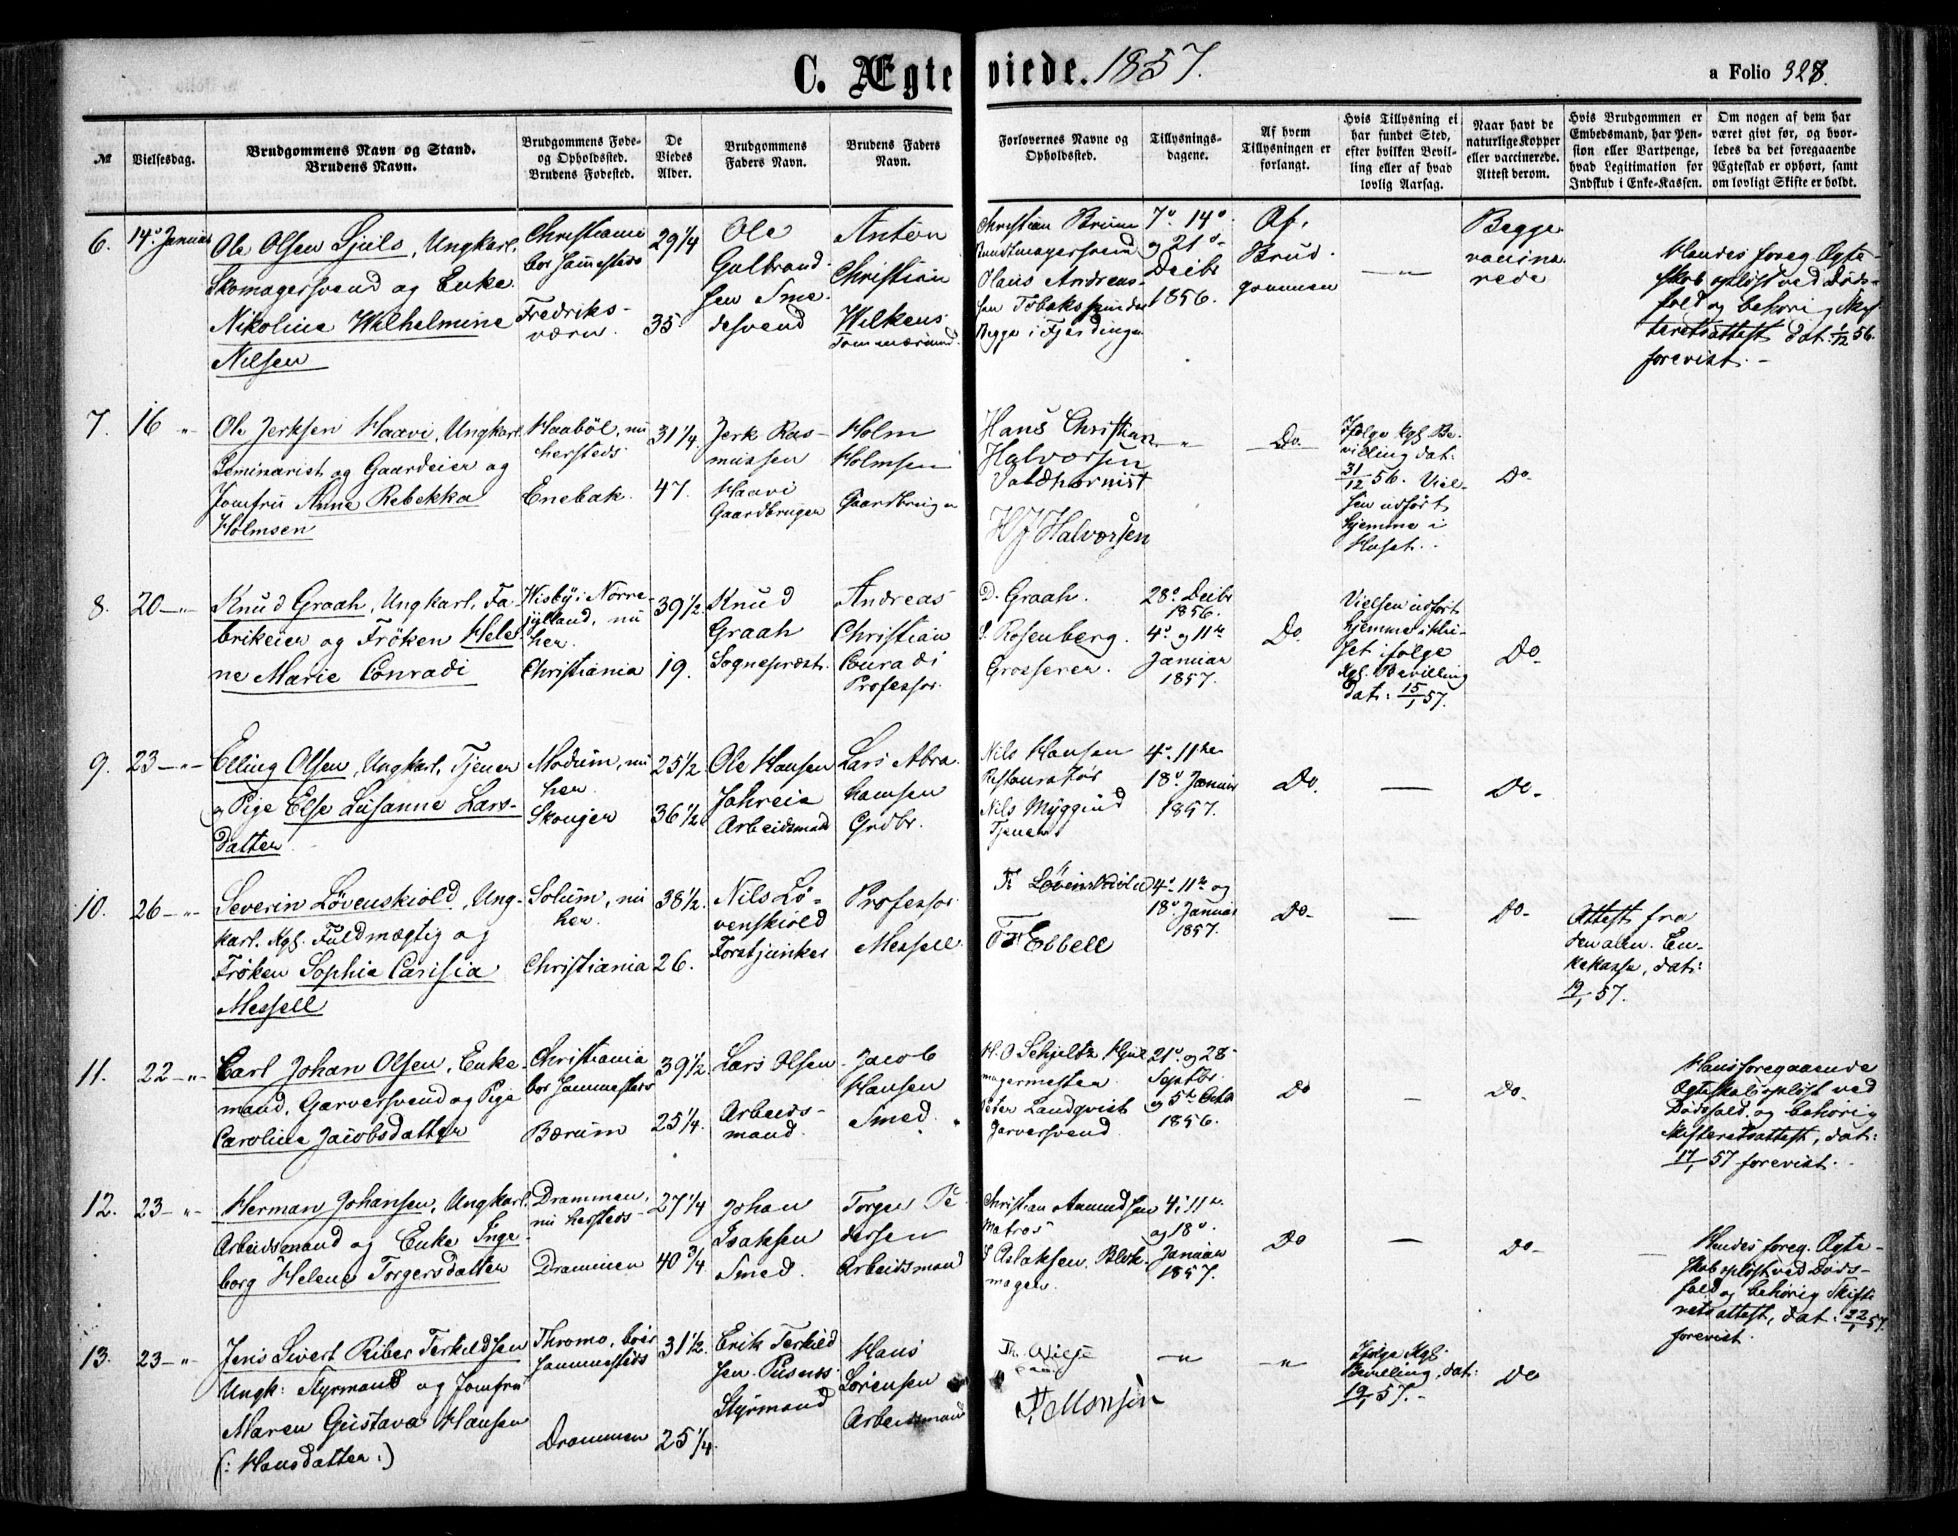 C. Ægteviede. 1857.
a Folio 328.
№
Vielsesdag.
Brudgommens Navn og Stand.
Brudens Navn.
Brudgommens Føde-
og Opholdssted.
Brudens Fødested.
De
Viedes
Alder.
Brudgommens
Faders Navn.
Brudens Faders
Navn.
Forlovernes Navne og
Opholdssted.
Tillysnings-
dagene.
Af hvem
Tillysningen er
forlangt.
Hvis Tillysning ei
har fundet Sted,
efter hvilken Bevil-
ling eller af hvad
lovlig Aarsag.
Naar havt de
naturlige Kopper
eller vaccinerede.
Attest derom.
Hvis Brudgommen er
Embedsmand, har Pen-
sion eller Vartpenge,
hvad Legitimation for
Indskud i Enke-Kassen.
Om nogen af dem har
været gift før, og hvor-
ledes da det foregaaende
Ægteskab er ophørt, samt
om lovligt Skifte er holdt.
6.
14. Januar
Ole Olsen Sjuls, Ungkarl.
Skomagersvend og Enke
Nikoline Wilhelmine
Nilsen
Christiania
bor sammesteds
Fredriks-
værn
29 1/4
35
Ole
Gulbrand-
sen Sme-
desvend
Anton
Christian
Wilkens
Tømmermand
Christian Bruun
Bundtmagersvend
Olaus Andreas-
sen Tobaksspinder
Begge i Fjerdingen
7. 14.
og 21.
Decbr
1856.
Af
Brud-
gommen
— „ —
Begge
vaccine-
rede
Hendes foreg. Ægte-
skab opløst ved Døds-
fald og behørig Skif-
teretsattest dat: 1/12 56.
forevist. —
7.
16 „
Ole Jerksen Haavi, Ungkarl.
Seminarist og Gaardeier og
Jomfru Anne Rebekka
Holmsen
Haabøl, nu
hersteds.
Enebak.
31 1/4
47.
Jerk Ras-
mussen
Haavi
Gaardbruger
Holm
Holmsen
Gaardbruger
Hans Christian
Halvorsen
Valdhornist
H J Halvorsen
— „ —
Do.
Ifølge Kgl. Be-
villing dat:
31/12 56. Viel-
sen udført
hjemme i
Huset.
Do
8.
20 — „
Knud Graah, Ungkarl, Fa-
brikeier og Frøken Hele-
ne Marie Conradi
Wisby i Nørre-
jylland, nu
her.
Christiania
39 1/2
19.
Knud
Graah
Sognepræst.
Andreas
Christian
Conradi
Professor.
D. Graah.
Rosenberg.
Grosserer
28. Decbr
1856.
4. og 11te
Januar
1857.
Do
Vielsen udført
hjemme i Hu-
set ifølge
Kgl. Bevilling
dat: 15/1 57.
Do
9.
23 — „
Elling Olsen, Ungkarl, Tjener
og Pige Else Susanne Lars-
datter
Modum, nu
her.
Skouger
25 1/2
36 1/2
Ole Hansen
Arbeidsmand
Lars Abra-
hamsen
Grdbr.
Nils Hansen
Restauratør
Nils Myggind
Tjener
4. 11te
18. Januar
1857.
Do.
—
Do.
10.
26 — „
Severin Løvenskiold, Ung-
karl. Kgl. Fuldmægtig og
Frøken Sophie Carisia
Messell
Solum, nu
her.
Christiania
38 1/2
26.
Nils Lø-
venskiold
Forstjunker
Professor
Messell
Løvenskiold
Ebbell
4. 11te og
18. Januar
1857.
Do.
—
Do.
Attest fra
den alm. En-
kekasse, dat:
19/1 57.
11.
22 — „
Carl Johan Olsen, Enke-
mand, Garversvend og Pige
Caroline Jacobsdatter
Christiania
bor sammesteds
Bærum
39 1/2
25 1/4.
Lars Olsen
Arbeids-
mand.
Jacob
Hansen
Smed.
H. O Schjeltz
magermester
Peter Landqvist
Garversvend
21. og 28
Septbr.
og 5te Octb
1856.
Do
—
Do.
Hans foregaaende
Ægteskab opløst ved
Dødsfald, og behørig
Skifteretsattest, dat:
17/1 57 forevist.
12.
23 — „
Herman Johansen, Ungkarl.
Arbeidsmand og Enke Inge-
borg Helene Torgersdatter
Drammen,
nu hersteds
Drammen
27 1/4
40 3/4
Johan
Isaksen
Smed.
Torger Pe-
dersen
Arbeidsmand
Christian Amundsen
Matros
Aslaksen. Blok-
mager.
4. 11te
og 18.
Januar
1857.
Do
—
Do.
Hendes foreg. Ægte-
skab opløst ved Døds-
fald og behørig Skifte-
retsattest, dat: 22/1 57.
forevist.
13.
23 — „
Jens Sivert Riber Terkildsen
Ungk: Styrmand og Jomfru
Maren Gustava Hansen
(: Hansdatter :)
Thromø, boer
sammesteds
Drammen
31 1/2
25 1/4.
Erik Terkild-
sen
Styrmand
Hans
Sørensen
Arbeidsmand
Monsen
— „
— „
Ifølge Kgl.
Bevilling, dat:
19/1 57.
Do